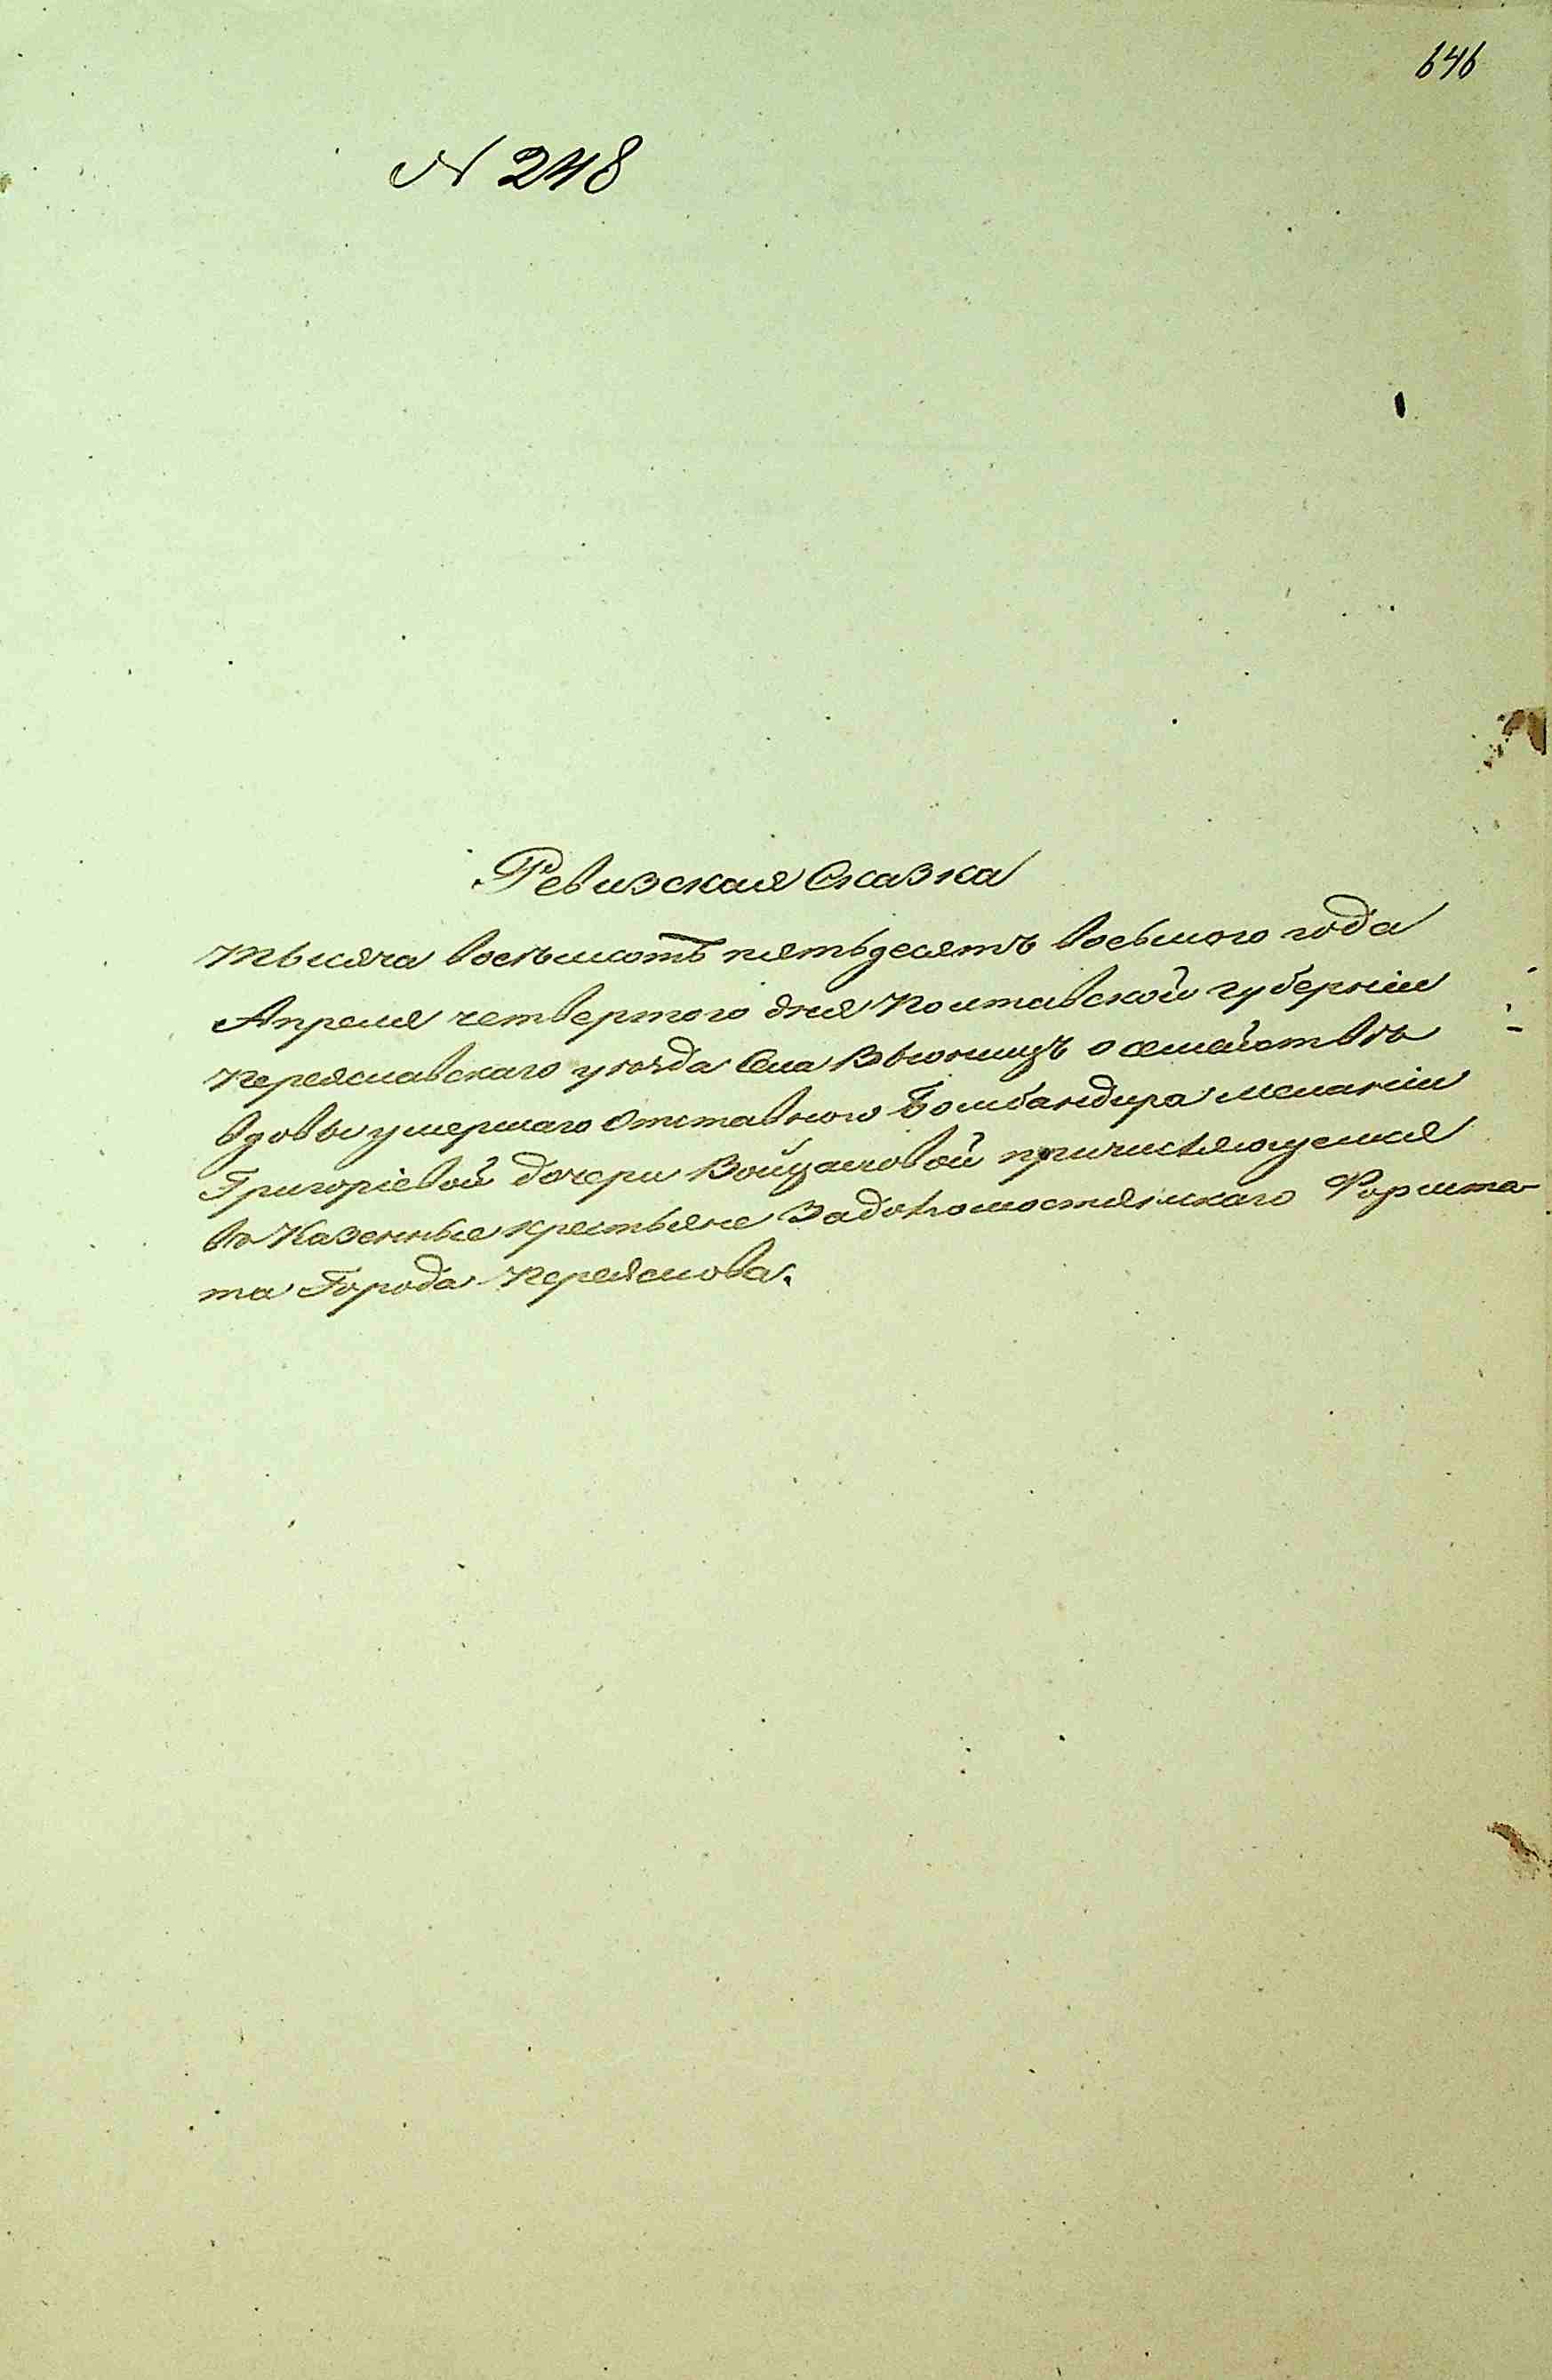 646
N 248
Ревизская Сказка
Тысяча восемьсотъ пятьдесятъ восьмого года
Апреля четвертого дня Полтавской губерніи
Переяславскаго уѣзда Села Вьюницъ о семействѣ
вдовы умершаго Отставного Бомбандира Меланіи
Григоріевой дочери Войцаховой причисляющемся
въ Казенные крестьяне Форшта-
та Города Переяслова.